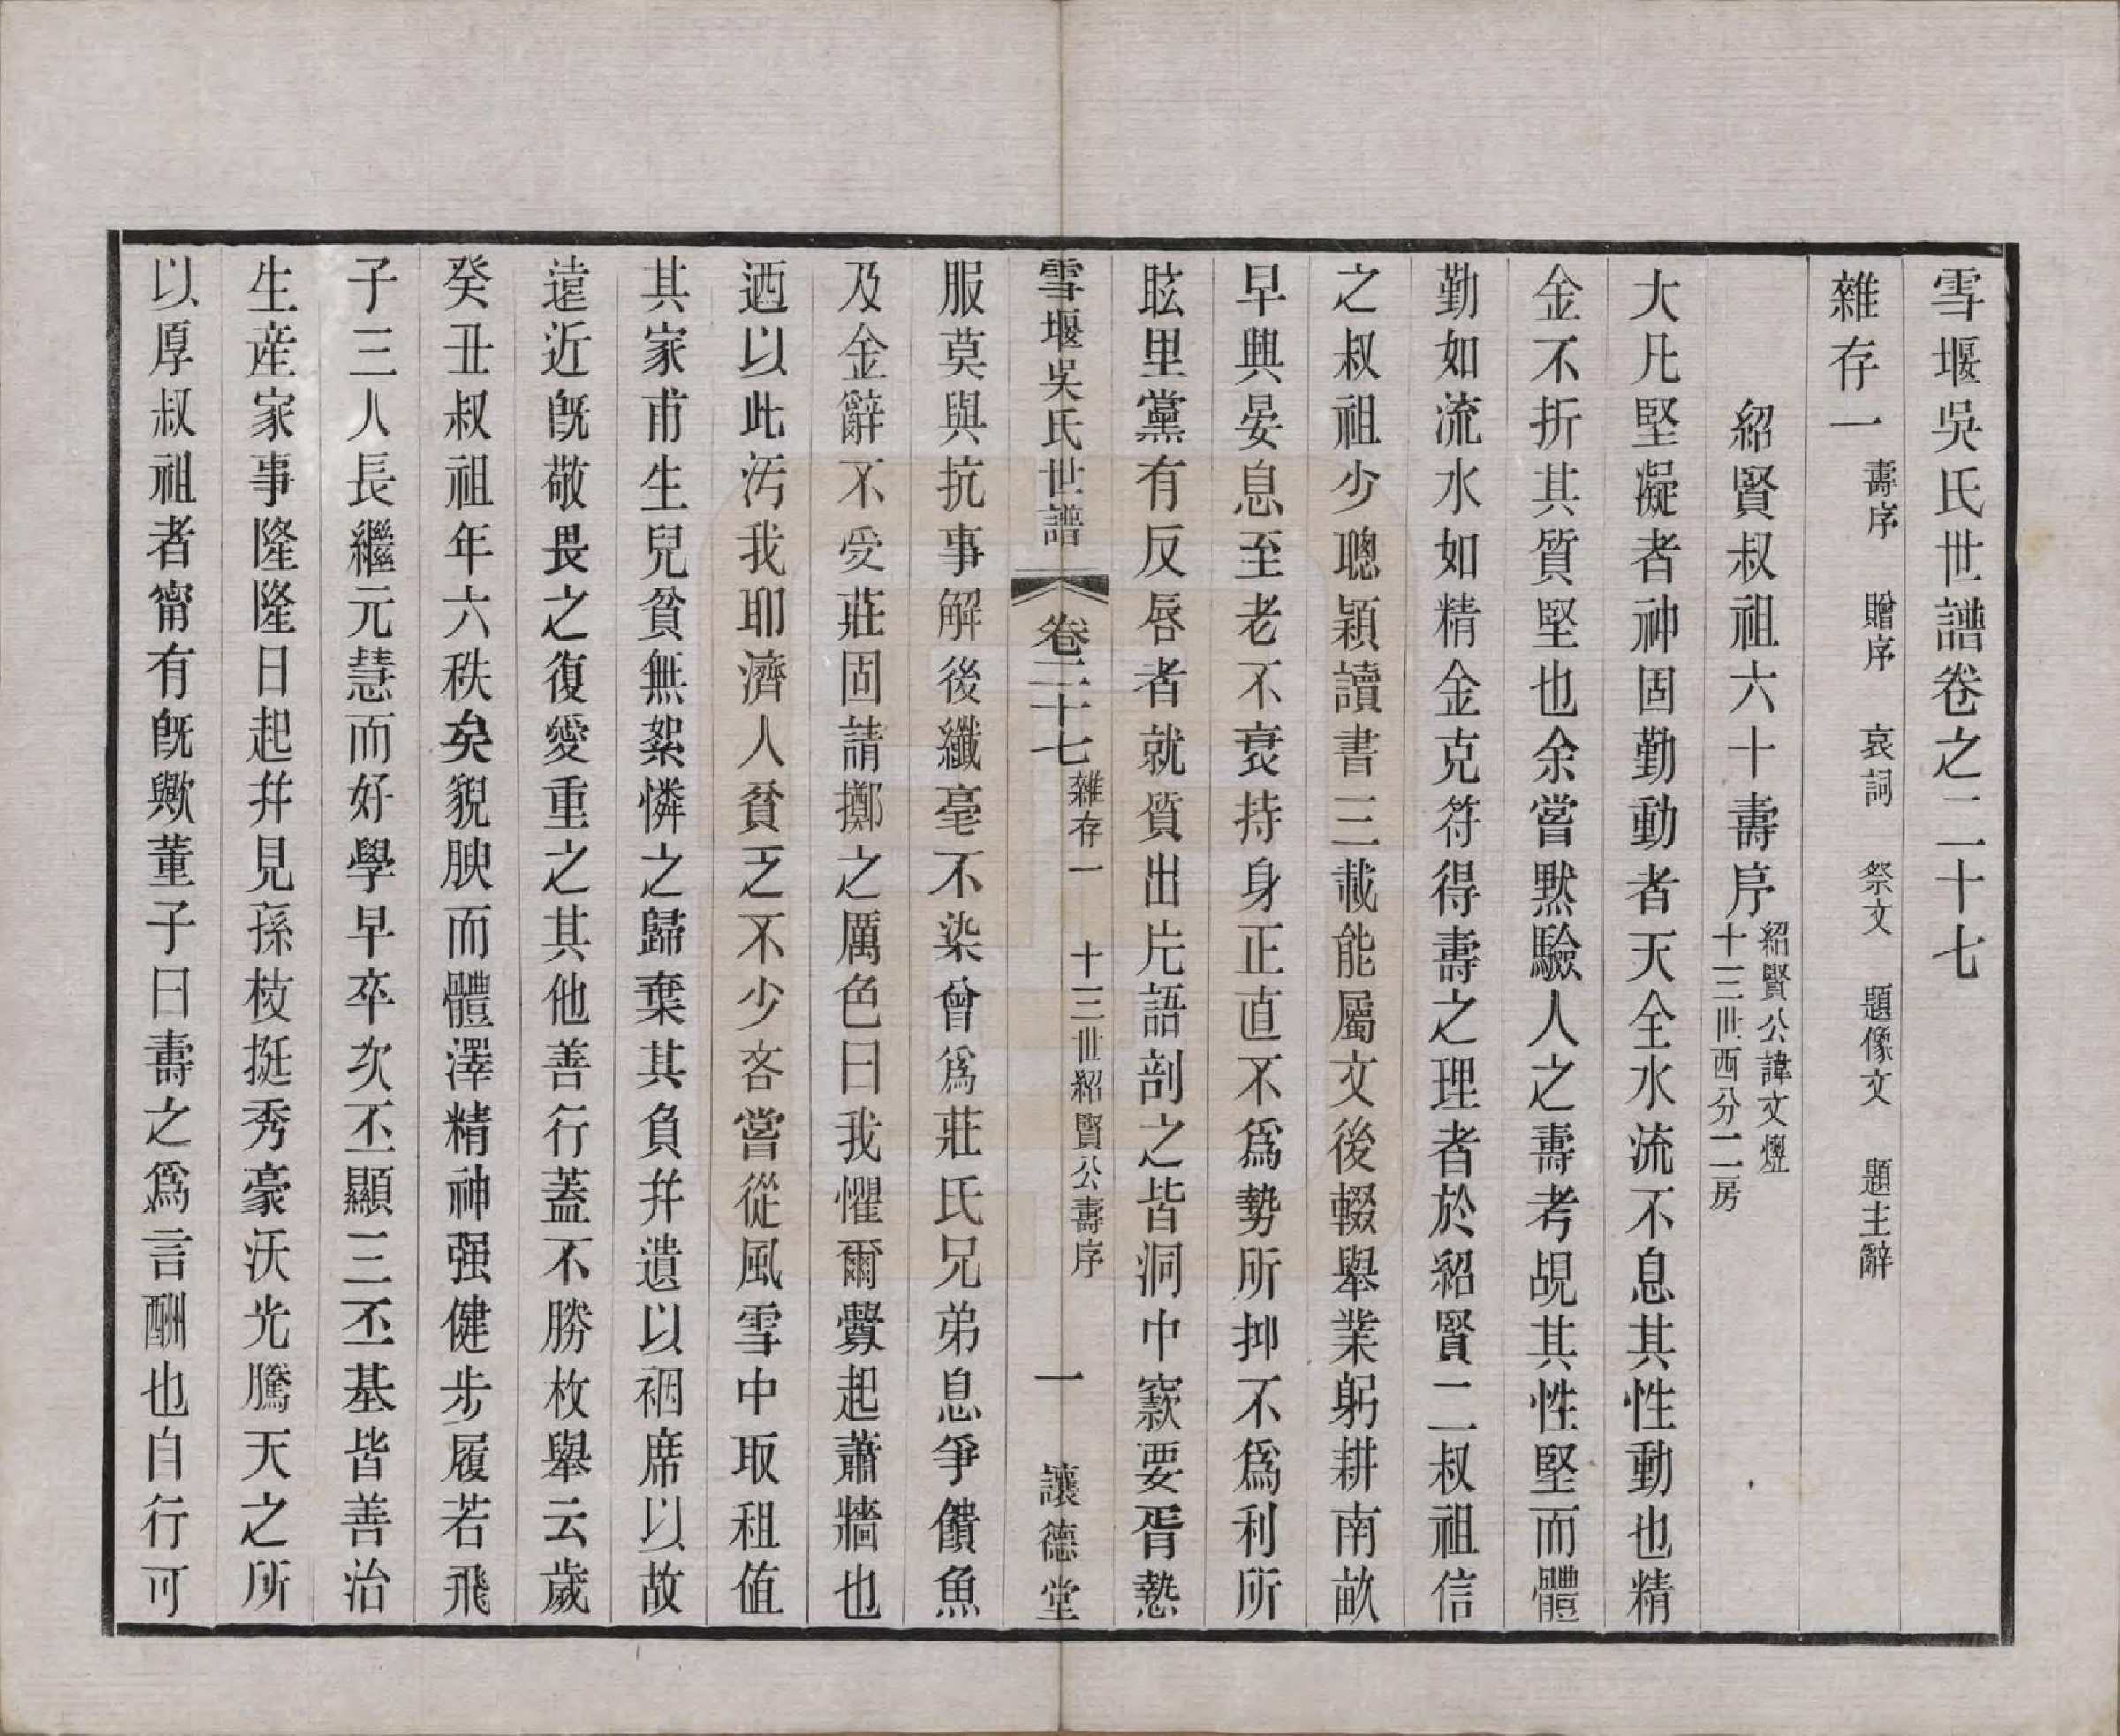 雪堰吳氏世譜卷之二十七
雜存一 壽序 贈序 哀詞 祭文 題像文 題主辭
紹賢叔祖六十壽序 紹賢公諱文煙
十三世西分二房
大凡堅凝者神固勤動者天全水流不息其性動也精
金不折其質堅也余嘗默驗人之壽考覘其性堅而體
勤如流水如精金克符得壽之理者於紹賢二叔祖信
之叔祖少聰穎讀書三載能屬文後輟舉業躬耕南畝
早興晏息至老不衰持身正直不爲勢所抑不爲利所
眩里黨有反唇者就質出片語剖之皆洞中窾要胥慹
雪堰吳氏世譜 卷二十七 雜存一 十三世紹賢公壽序 一 讓德堂
服莫與抗事解後纖毫不染曾爲莊氏兄弟息爭饋魚
及金辭不受莊固請擲之厲色曰我懼爾釁起蕭牆也
迺以此汚我耶濟人貧乏不少吝嘗從風雪中取租值
其家甫生兒貧無絮憐之歸棄其負幷遺以裀席以故
遠近旣敬畏之復愛重之其他善行蓋不勝枚舉云歲
癸丑叔祖年六秩矣貌腴而體澤精神强健步履若飛
子三人長繼元慧而好學早卒次丕顯三丕基皆善治
生産家事隆隆日起幷見孫枝挺秀豪沃光騰天之所
以厚叔祖者甯有旣歟董子曰壽之爲言酬也自行可